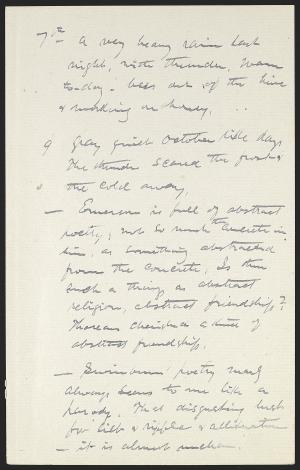 7th A very heavy rain last
night, with thunder. Warm
to-day; bees out of the hive
& working on honey.
9 Gray quiet October like day.
The thunder scared the frost &
the cold away.
— Emerson is full of abstract
poetry, not so much the concrete in
him, as something abstracted
from the concrete. Is there
such a thing as abstract
religion, abstract friendship?
Thoreau cherished a kind of
abstract friendship.
— Swinburnes' poetry nearly
always seems to me like a
parody. That disgusting
for lilt & ripple & alliteration
— it is almost